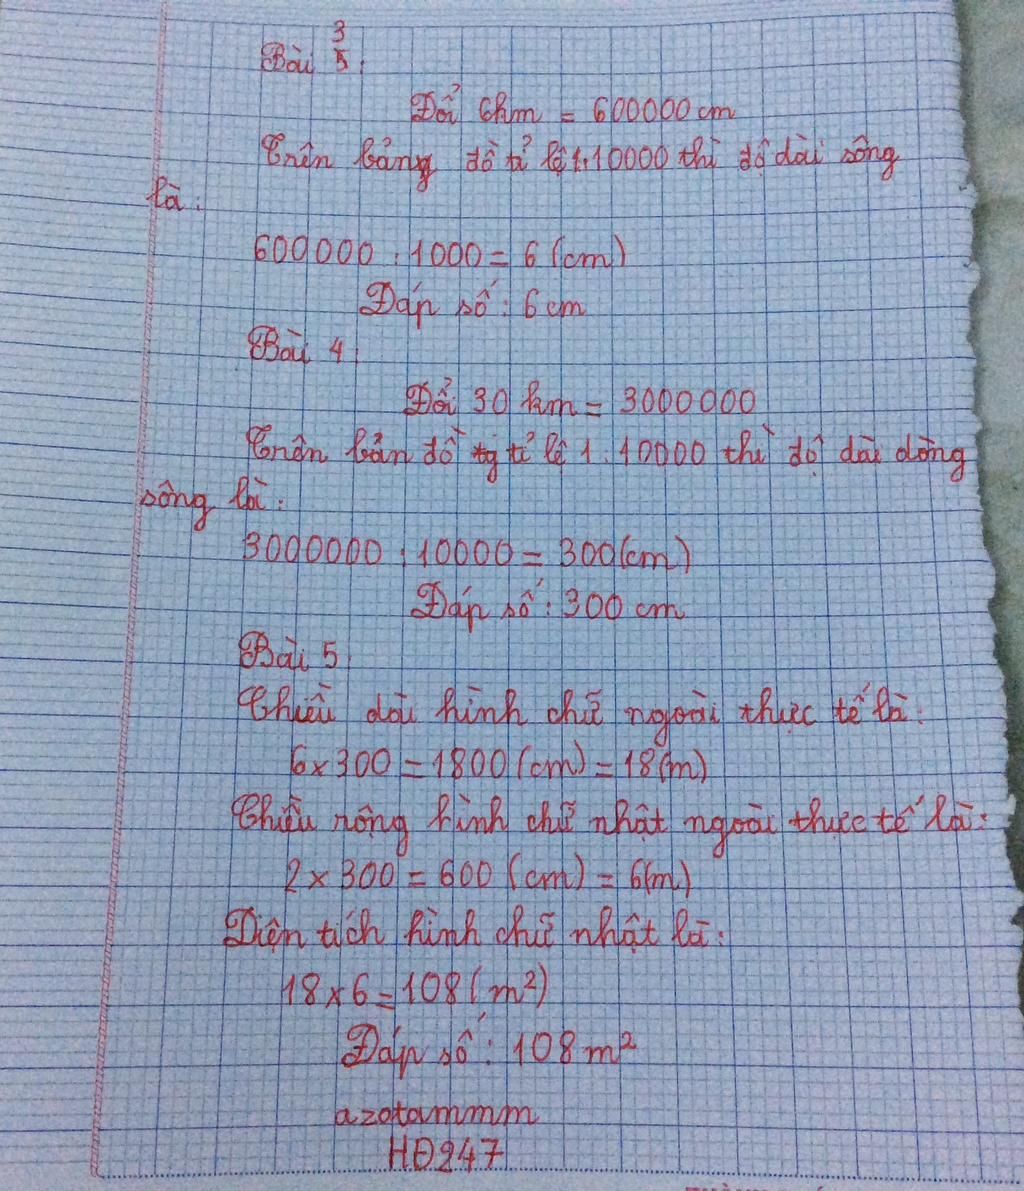 Bài 3
5:
Đổi 6km = 600000 cm
Trên bảng đồ tỉ lệ 1:10000 thì độ dài sông
là:
600000 : 1000 = 6 (cm)
Đáp số : 6 cm
Bài 4:
Đổi 30 km = 3000000
Trên bản đồ tg tỉ lệ 1 : 10000 thì độ dài dòng
sông là:
3000000 : 10000 = 300(cm)
Đáp số : 300 cm
Bài 5:
Chiều dài hình chữ ngoài thực tế là:
6 x 300 = 1800 (cm) = 18(m)
Chiều rộng hình chữ nhật ngoài thực tế là:
2 x 300 = 600 (cm) = 6(m)
Diện tích hình chữ nhật là:
18 x 6 = 108 (m²)
Đáp số : 108 m²
azotammm
HĐ247